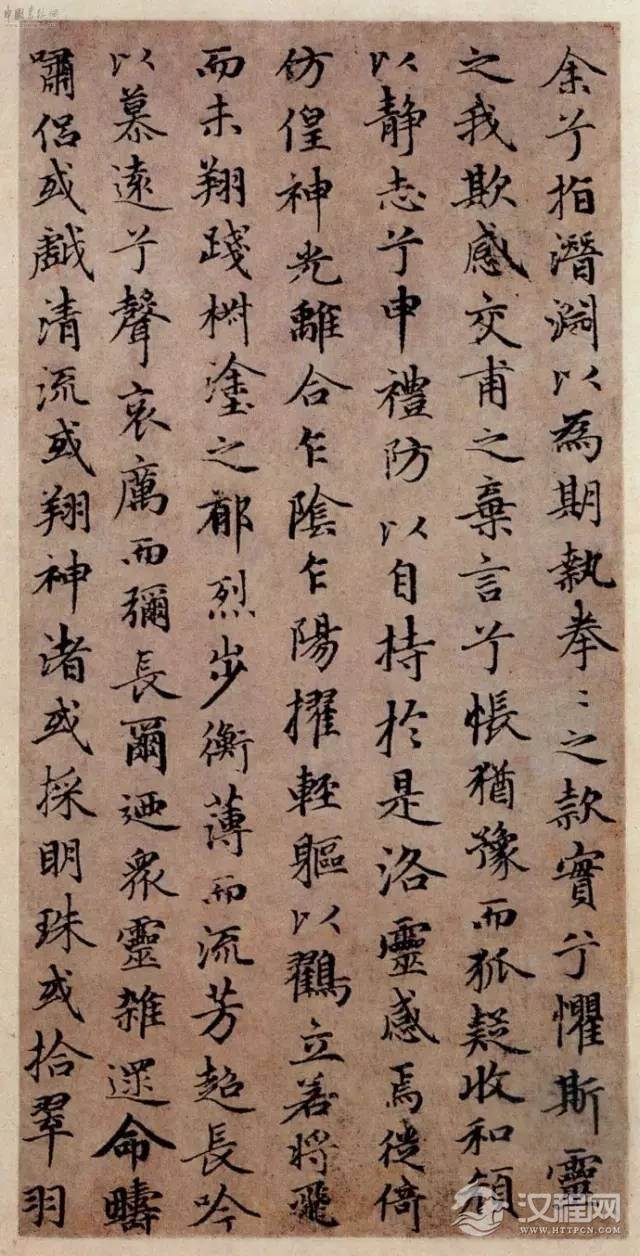 余兮指潛淵以為期執拳〻之款實兮懼斯靈
之我欺感交甫之棄言兮悵猶豫而狐疑收和顏
以静志兮申禮防以自持於是洛靈感焉徙倚
仿偟神光離合乍陰乍陽擢輕軀以鸖立若將飛
而未翔踐椒塗之郁烈步衡薄而流芳超長吟
以慕遠兮聲哀厲而彌長爾迺衆靈雜遝命疇
嘯侶或戲清流或翔神渚或採明珠或拾翠羽
汉程网
WWW.HTTPCN.COM